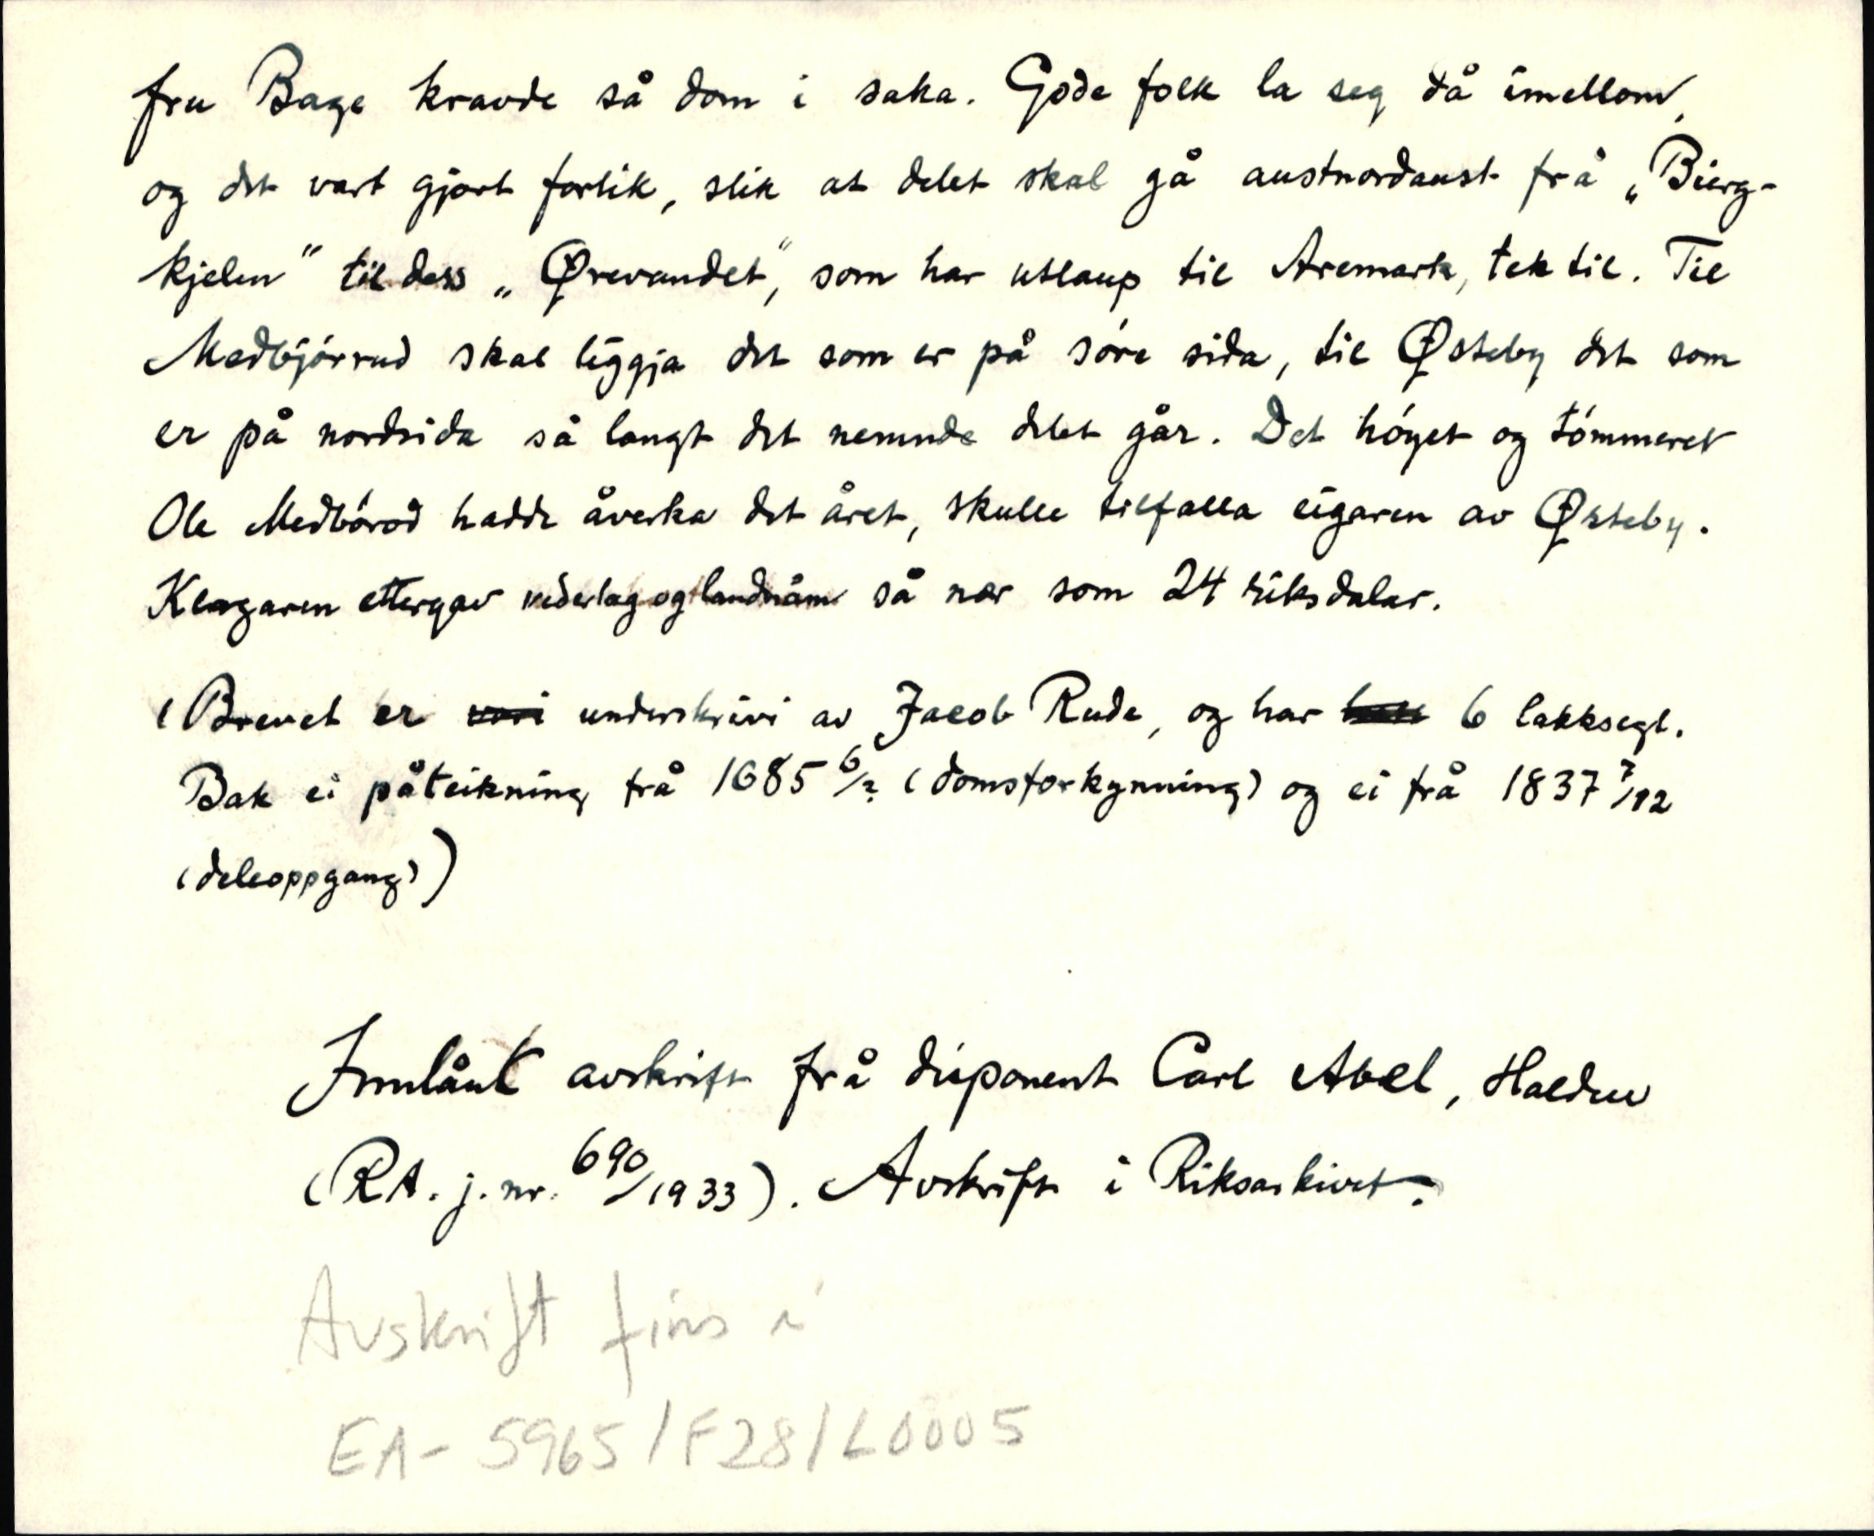 fru Bage kravde så dom i saka. Gode folk la seg då imellom,
og det vart gjort forlik, slik at delet skal gå austnordaust frå „Bierg-
kjelen" til dess „Ørevandet", som har utlaup til Aremark, tek til. Til
Medbjørrud skal liggja det som er på søre sida, til Østeby det som
er på nordsida så langt det nemnde delet går. Det høyet og tømmeret
Ole Medbörod hadde åverka det året, skulle tilfalla eigaren av Østeby.
Klagaren ettergav vederlag og landnåm så nær som 24 riksdalar.
(Brevet er vori underskrivi av Jacob Rude, og har 6 lakksegl.
Bak ei påteikning frå 1685 6/2 (domsforkynning) og ei frå 1837 7/12
(deleoppgang))
Innlånt avskrift frå disponent Carl Abel, Halden
(RA. j. nr. 690/1933). Avskrift i Riksarkivet.
Avskrift fins i
EA- 5965/F28/L0005